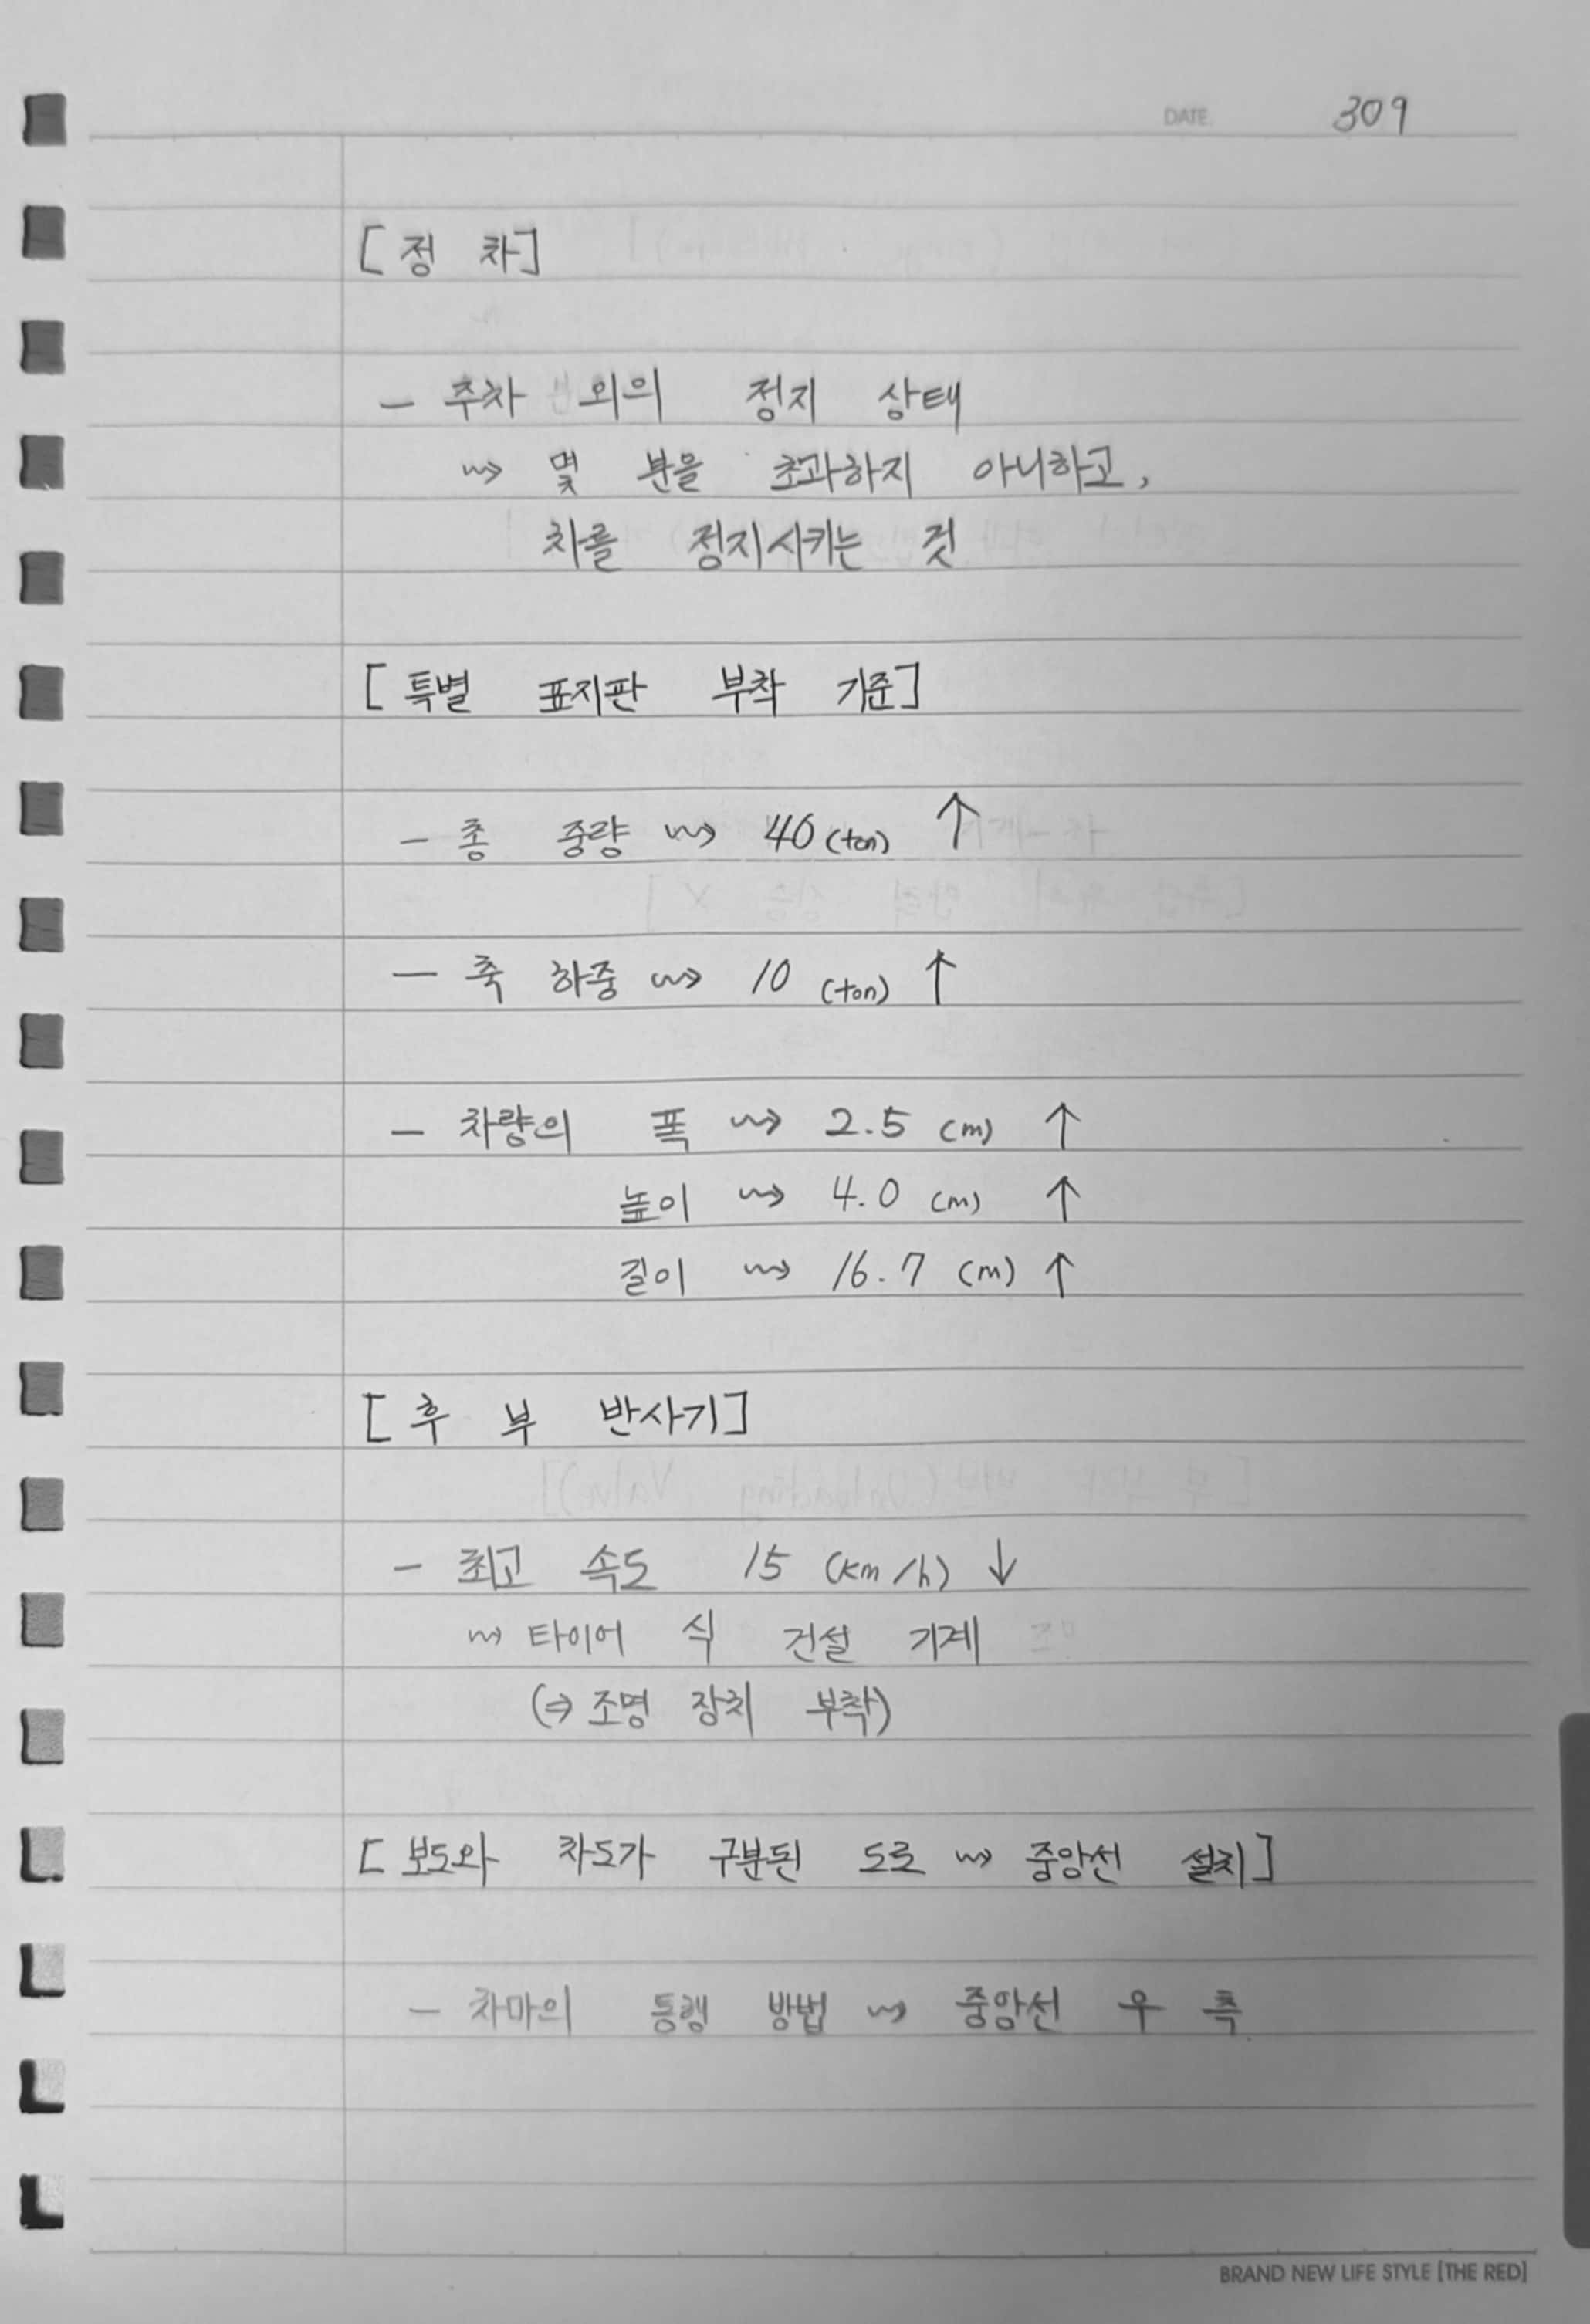 DATE. 309
[정 차]
- 주차 외의 정지 상태
⇝ 몇 분을 초과하지 아니하고,
차를 정지시키는 것
[특별 표지판 부착 기준]
- 총 중량 ⇝ 40 (ton) ↑
- 축 하중 ⇝ 10 (ton) ↑
- 차량의 폭 ⇝ 2.5 (m) ↑
높이 ⇝ 4.0 (m) ↑
길이 ⇝ 16.7 (m) ↑
[후 부 반사기]
- 최고 속도 15 (km/h) ↓
⇝ 타이어 식 건설 기계
(⇒ 조명 장치 부착)
[보도와 차도가 구분된 도로 ⇝ 중앙선 설치]
- 차마의 통행 방법 ⇝ 중앙선 우 측
BRAND NEW LIFE STYLE [THE RED]